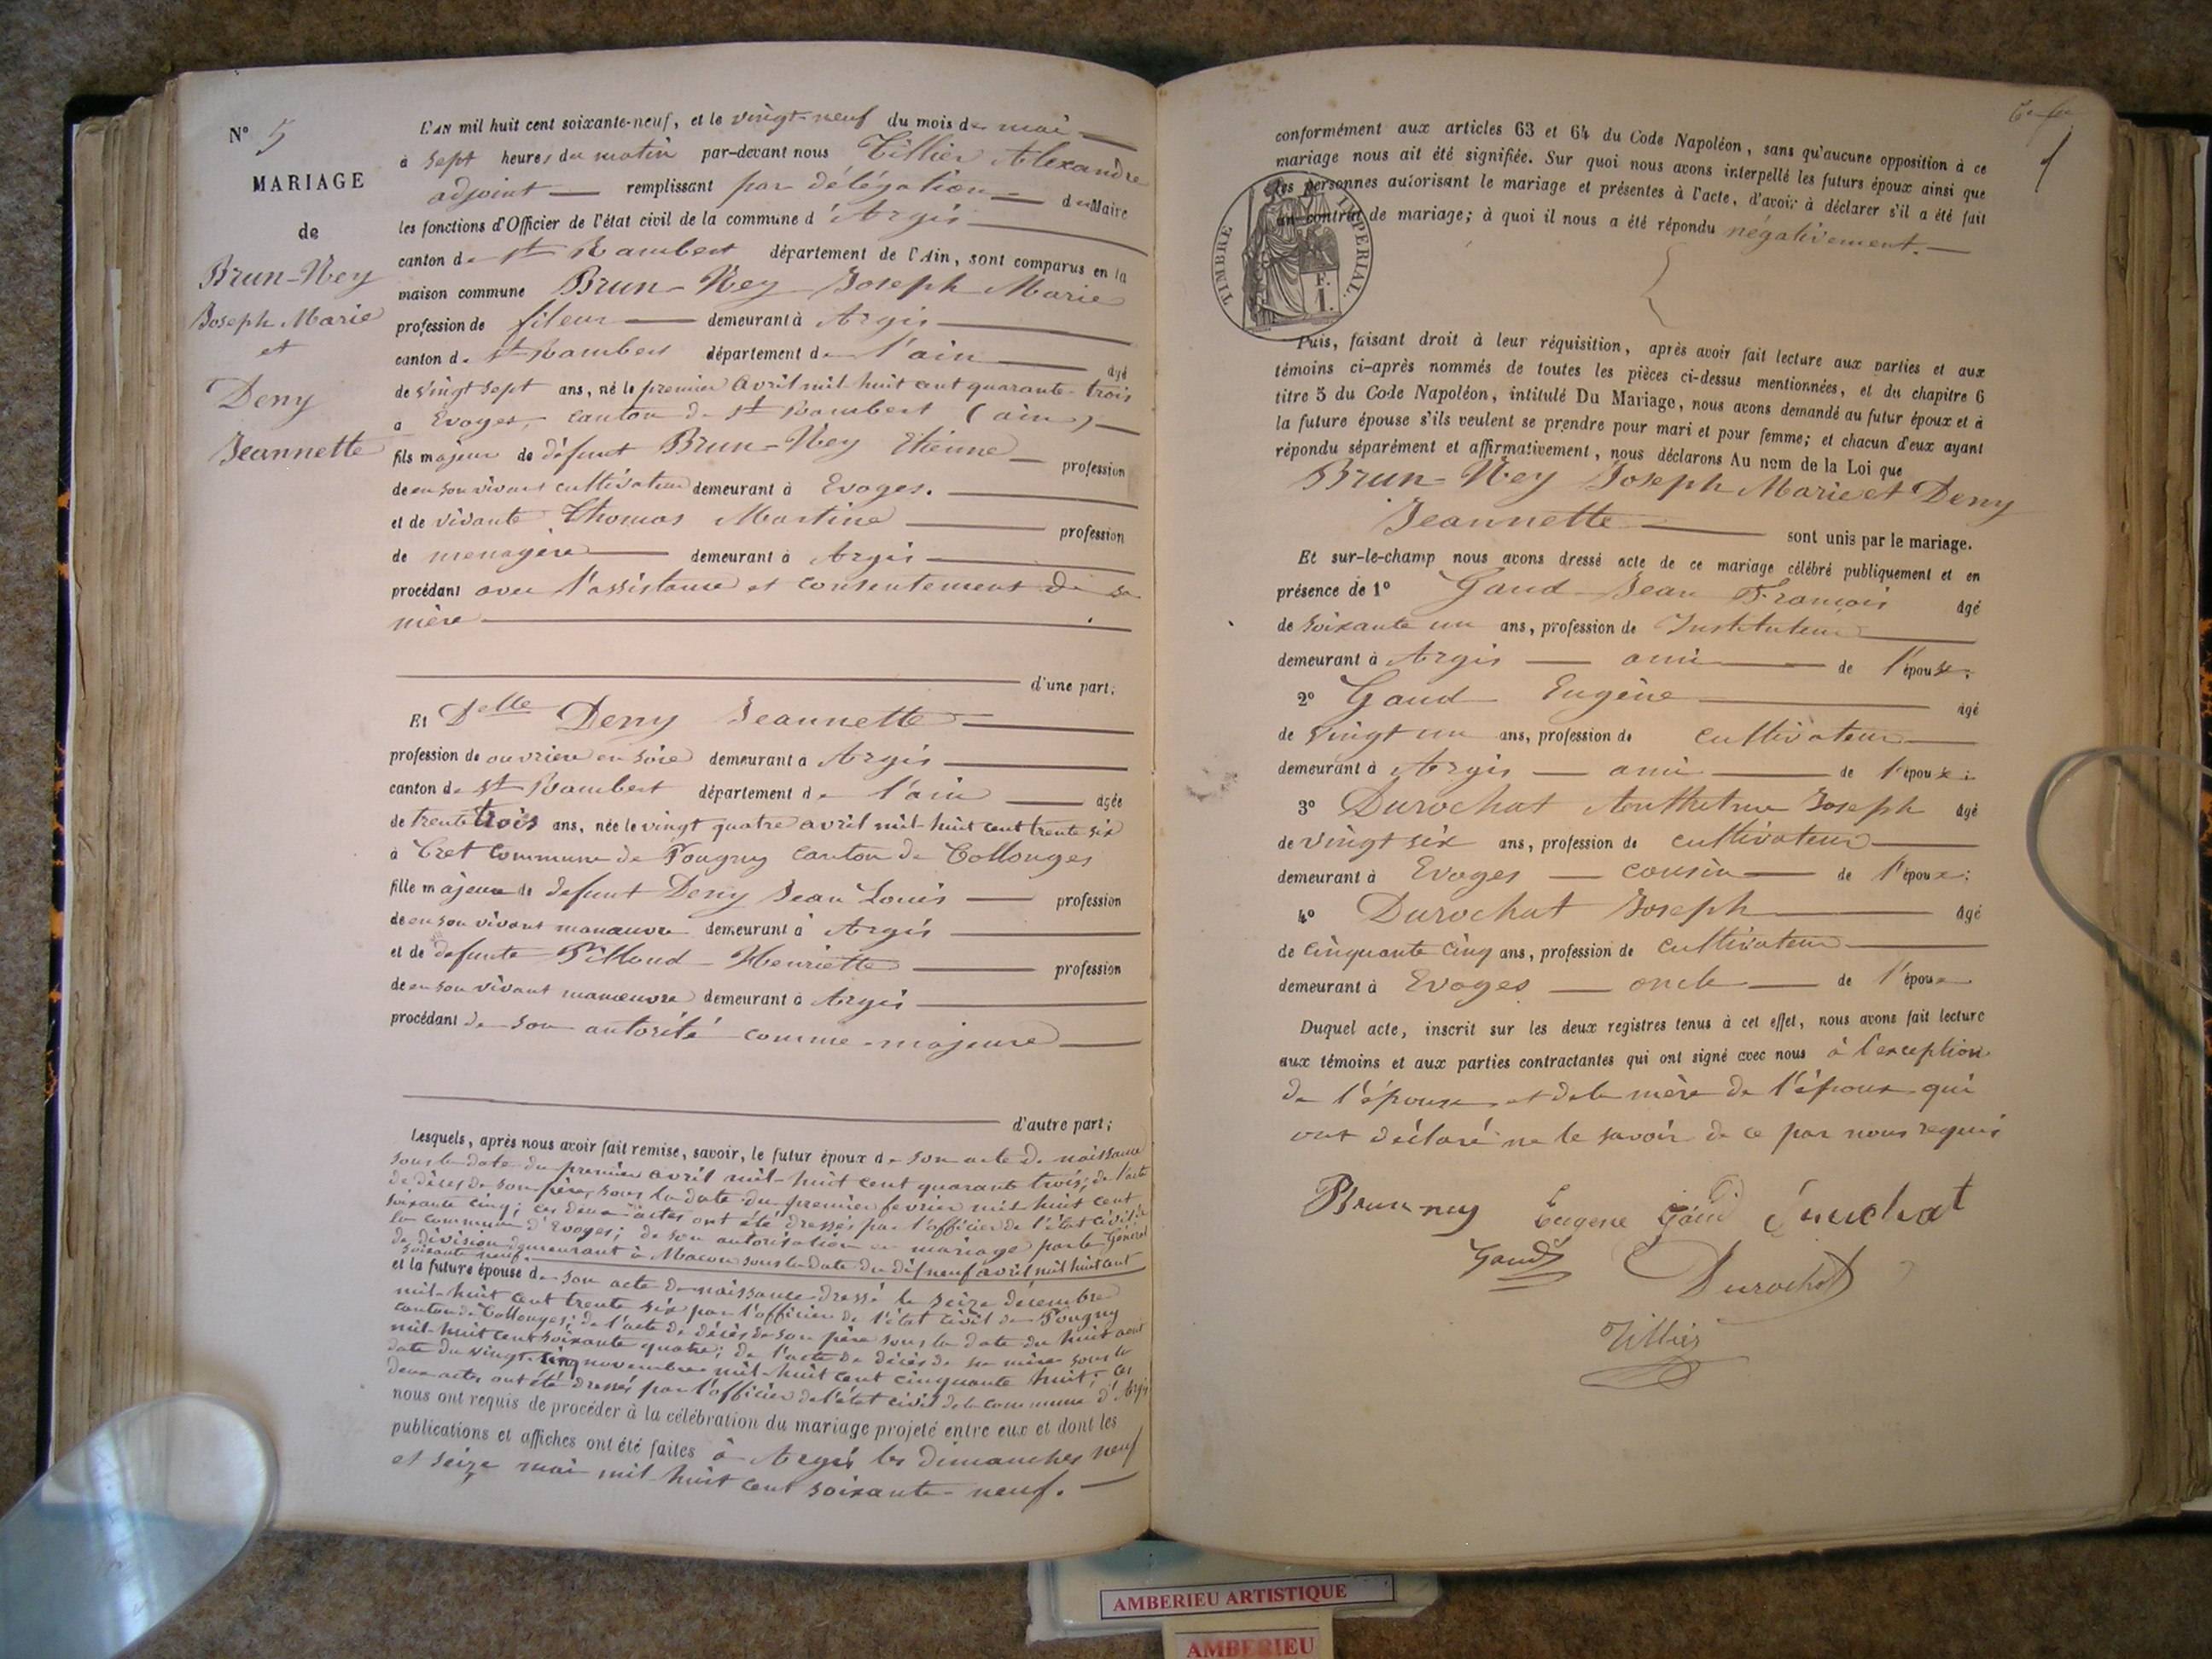 N° 5
MARIAGE
de
Brun-Ney
Joseph Marie
et
Deny
Jeannette
L'AN mil huit cent soixante-neuf, et le vingt-neuf du mois de mai
à sept heures du matin par-devant nous Tillier Alexandre
adjoint remplissant par délégation du Maire
les fonctions d'Officier de l'état civil de la commune d'Argis
canton de St Rambert département de l'Ain, sont comparus en la
maison commune Brun-Ney Joseph Marie
profession de fileur demeurant à Argis
canton de St Rambert département de l'ain âgé
de vingt sept ans, né le premier avril mil huit cent quarante-trois
à Evoges, canton de St Rambert (ain)
fils majeur de défunt Brun-Ney Etienne profession
de en son vivant cultivateur demeurant à Evoges.
et de vivante Thomas Martine profession
de menagère demeurant à Argis
procédant avec l'assistance et consentement de sa
mère
d'une part;
Et Delle Deny Jeannette
profession de ouvriere en soie demeurant à Argis
canton de St Rambert département de l'ain âgée
de trente trois ans, née le vingt quatre avril mil huit cent trente six
à Cret commune de Pougny canton de Collonges
fille majeure de defunt Deny Jean Louis profession
de en son vivant manœuvre demeurant à Argis
et de defunte Pilloud Henriette profession
de en son vivant manœuvre demeurant à Argis
procédant de son autorité comme majeure
d'autre part;
Lesquels, après nous avoir fait remise, savoir, le futur époux de son acte de naissance
sous la date du premier avril mil-huit cent quarante trois; de l'acte
de décès de son père, sous la date du premier fevrier mil huit cent
soixante cinq; ces deux actes ont été dressés par l'officier de l'état civil de
la commune d'Evoges; de son autorisation en mariage par le Général
de division demeurant à Macon sous la date du dix neuf avril mil huit cent
soixante neuf.
et la future épouse de son acte de naissance dressé le seize décembre
mil-huit cent trente six par l'officier de l'état civil de Pougny
canton de Collonges; de l'acte de décès de son père sous la date du huit aout
mil-huit cent soixante quatre; de l'acte de décès de sa mère sous la
date du vingt-cinq novembre mil-huit cent cinquante huit; ces
deux actes ont été dressés par l'officier de l'état civil de la commune d'Argis
nous ont requis de procéder à la célébration du mariage projeté entre eux et dont les
publications et affiches ont été faites à Argis les dimanches neuf
et seize mai mil huit cent soixante-neuf.
conformément aux articles 63 et 64 du Code Napoléon, sans qu'aucune opposition à ce
mariage nous ait été signifiée. Sur quoi nous avons interpellé les futurs époux ainsi que
les personnes autorisant le mariage et présentes à l'acte, d'avoir à déclarer s'il a été fait
un contrat de mariage; à quoi il nous a été répondu négativement.
TIMBRE IMPERIAL.
F.
1.
Puis, faisant droit à leur réquisition, après avoir fait lecture aux parties et aux
témoins ci-après nommés de toutes les pièces ci-dessus mentionnées, et du chapitre 6
titre 5 du Code Napoléon, intitulé Du Mariage, nous avons demandé au futur époux et à
la future épouse s'ils veulent se prendre pour mari et pour femme; et chacun d'eux ayant
répondu séparément et affirmativement, nous déclarons Au nom de la Loi que
Brun-Ney Joseph Marie et Deny
Jeannette sont unis par le mariage.
Et sur-le-champ nous avons dressé acte de ce mariage célébré publiquement et en
présence de 1° Gaud Jean François âgé
de soixante un ans, profession de Instituteur
demeurant à Argis ami de l'épouse.
2° Gaud Eugène âgé
de vingt un ans, profession de cultivateur
demeurant à Argis ami de l'époux;
3° Durochat Joseph âgé
de vingt six ans, profession de cultivateur
demeurant à Evoges cousin de l'époux;
4° Durochat Joseph âgé
de cinquante cinq ans, profession de cultivateur
demeurant à Evoges oncle de l'époux
Duquel acte, inscrit sur les deux registres tenus à cet effet, nous avons fait lecture
aux témoins et aux parties contractantes qui ont signé avec nous à l'exception
de l'épouse et de la mère de l'époux qui
ont déclaré ne le savoir de ce par nous requis
Brun ney Eugene Gaud Durochat
Gaud Durochat
Tillier
AMBERIEU ARTISTIQUE
AMBERIEU